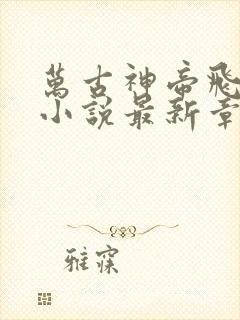 萬古神帝飛
小說最新章
雅寐